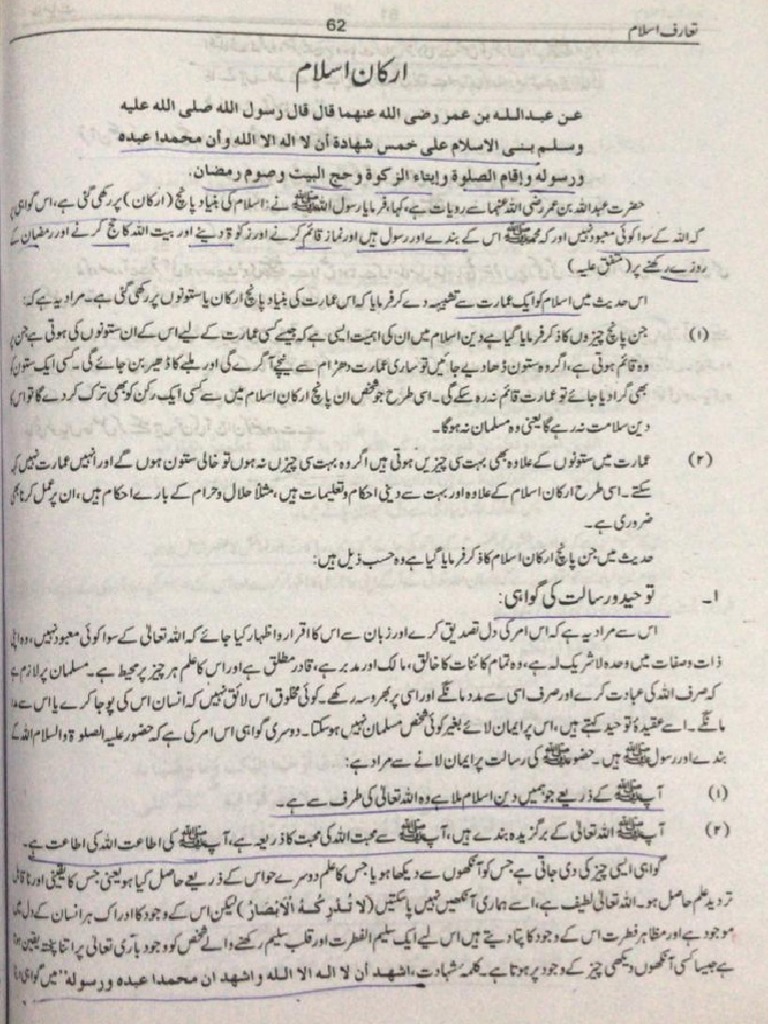 تعارف اسلام
62
ارکان اسلام
عن عبدالله بن عمر رضى الله عنهما قال قال رسول الله صلى الله عليه
وسلم بنى الاسلام على خمس شهادة أن لا اله الا الله وأن محمدا عبده
ورسوله وإقام الصلوة وإيتاء الزكوة وحج البيت وصوم رمضان.
حضرت عبداللہ بن عمر رضی اللہ عنہما سے روایات ہے، کہا، فرمایا رسول اللہ ﷺ نے: اسلام کی بنیاد پانچ (ارکان) پر رکھی گئی ہے، اس گواہی
کہ اللہ کے سوا کوئی معبود نہیں اور کہ محمد ﷺ اس کے بندے اور رسول ہیں اور نماز قائم کرنے اور زکوۃ دینے اور بیت اللہ کا حج کرنے اور رمضان کے
روزے رکھنے پر (متفق علیہ)
اس حدیث میں اسلام کو ایک عمارت سے تشبیہ دے کر فرمایا کہ اس عمارت کی بنیاد پانچ ارکان یا ستونوں پر رکھی گئی ہے۔ مراد یہ ہے کہ:
(۱) جن پانچ چیزوں کا ذکر فرمایا گیا ہے دین اسلام میں ان کی اہمیت ایسی ہے کہ جیسے کسی عمارت کے لیے اس کے ان ستونوں کی ہوتی ہے جن پر
وہ قائم ہوتی ہے، اگر وہ ستون ڈھا دیے جائیں تو ساری عمارت دھڑام سے نیچے آ گرے گی اور ملبے کا ڈھیر بن جائے گی۔ کسی ایک ستون
بھی گرا دیا جائے تو عمارت قائم نہ رہ سکے گی۔ اسی طرح جو شخص ان پانچ ارکان اسلام میں سے کسی ایک رکن کو بھی ترک کر دے گا تو اس
دین سلامت نہ رہے گا یعنی وہ مسلمان نہ ہوگا۔
(۲) عمارت میں ستونوں کے علاوہ بھی بہت سی چیزیں ہوتی ہیں اگر وہ بہت سی چیزیں نہ ہوں تو خالی ستون ہوں گے اور انہیں عمارت نہیں کہہ
سکتے۔ اسی طرح ارکان اسلام کے علاوہ اور بہت سے دینی احکام و تعلیمات ہیں، مثلاً حلال و حرام کے بارے احکام ہیں، ان پر عمل کرنا بھی
ضروری ہے۔
حدیث میں جن پانچ ارکان اسلام کا ذکر فرمایا گیا ہے وہ حسب ذیل ہیں:
۱۔ توحید و رسالت کی گواہی:
اس سے مراد یہ ہے کہ اس امر کی دل تصدیق کرے اور زبان سے اس کا اقرار و اظہار کیا جائے کہ اللہ تعالیٰ کے سوا کوئی معبود نہیں، وہ اپنی
ذات و صفات میں وحدہ لا شریک لہ ہے، وہ تمام کائنات کا خالق، مالک اور مدبر ہے، قادر مطلق ہے اور اس کا علم ہر چیز پر محیط ہے۔ مسلمان پر لازم ہے
کہ صرف اللہ کی عبادت کرے اور صرف اسی سے مدد مانگے اور اسی پر بھروسہ رکھے۔ کوئی مخلوق اس لائق نہیں کہ انسان اس کی پوجا کرے یا اس سے مدد
مانگے۔ اسے عقیدۂ توحید کہتے ہیں، اس پر ایمان لائے بغیر کوئی شخص مسلمان نہیں ہو سکتا۔ دوسری گواہی اس امر کی ہے کہ حضور علیہ الصلوۃ والسلام اللہ کے
بندے اور رسول ﷺ ہیں۔ حضور ﷺ کی رسالت پر ایمان لانے سے مراد ہے:
(۱) آپ ﷺ کے ذریعے جو ہمیں دین اسلام ملا ہے وہ اللہ تعالیٰ کی طرف سے ہے۔
(۲) آپ ﷺ اللہ تعالیٰ کے برگزیدہ بندے ہیں، آپ ﷺ سے محبت اللہ کی محبت کا ذریعہ ہے، آپ ﷺ کی اطاعت اللہ کی اطاعت ہے۔
گواہی ایسی چیز کی دی جاتی ہے جس کو آنکھوں سے دیکھا ہو یا جس کا علم دوسرے حواس کے ذریعے حاصل کیا ہو یعنی جس کا یقینی اور ناقابل
تردید علم حاصل ہو۔ اللہ تعالیٰ لطیف ہے، اسے ہماری آنکھیں نہیں پا سکتیں (لَا تُدْرِكُهُ الْاَبْصَارُ) لیکن اس کے وجود کا ادراک ہر انسان کے دل میں
موجود ہے اور مظاہر فطرت اس کے وجود کا پتا دیتے ہیں اس لیے ایک سلیم الفطرت اور قلب سلیم رکھنے والے شخص کو وجود باری تعالیٰ پر اتنا پختہ یقین ہوتا
ہے جیسا کسی آنکھوں دیکھی چیز کے وجود پر ہوتا ہے۔ کلمہ شہادت، اشهد أن لا اله الا الله واشهد ان محمدا عبده ورسوله" میں گواہی